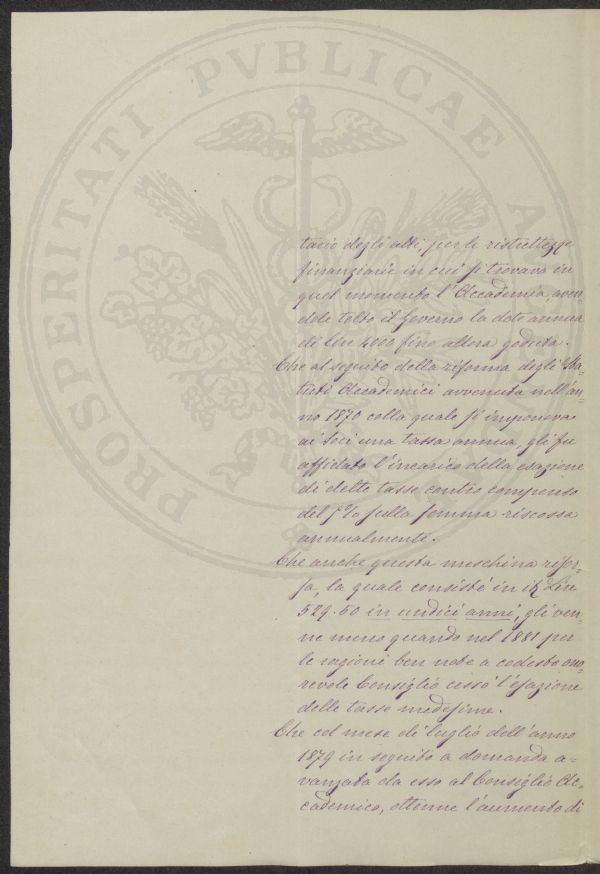 PROSPERITATI PVBLICAE A
tario degli atti, per le ristrettezze
finanziarie in cui si trovava in
quel momento l'Accademia, aven-
dole tolto il Governo la dote annua
di lire 4000 fino allora goduta.
Che al seguito della riforma degli Sta-
tuti Accademici avvenuta nell'an-
no 1870 colla quale si imponeva
ai Soci una tassa annua, gli fu
affidato l'incarico della esazione
di dette tasse contro compenso
del 5% sulla somma riscossa
annualmente.
Che anche questa meschina risor-
sa, la quale consisté in Lire
529.60 in undici anni, gli ven-
ne meno quando nel 1881 per
le ragioni ben note a codesto ono-
revole Consiglio cessò l'esazione
delle tasse medesime.
Che col mese di luglio dell'anno
1879 in seguito a domanda a=
vanzata da esso al Consiglio Ac-
cademico, ottenne l'aumento di